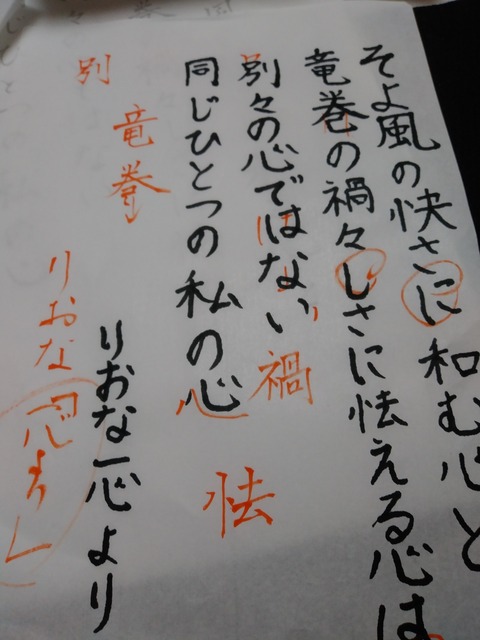 そよ風の快さに和む心と
竜巻の禍々しさに怯える心は
別々の心ではない
同じひとつの私の心
りおな「心より
禍
怯
別
竜巻
りおな「心より」